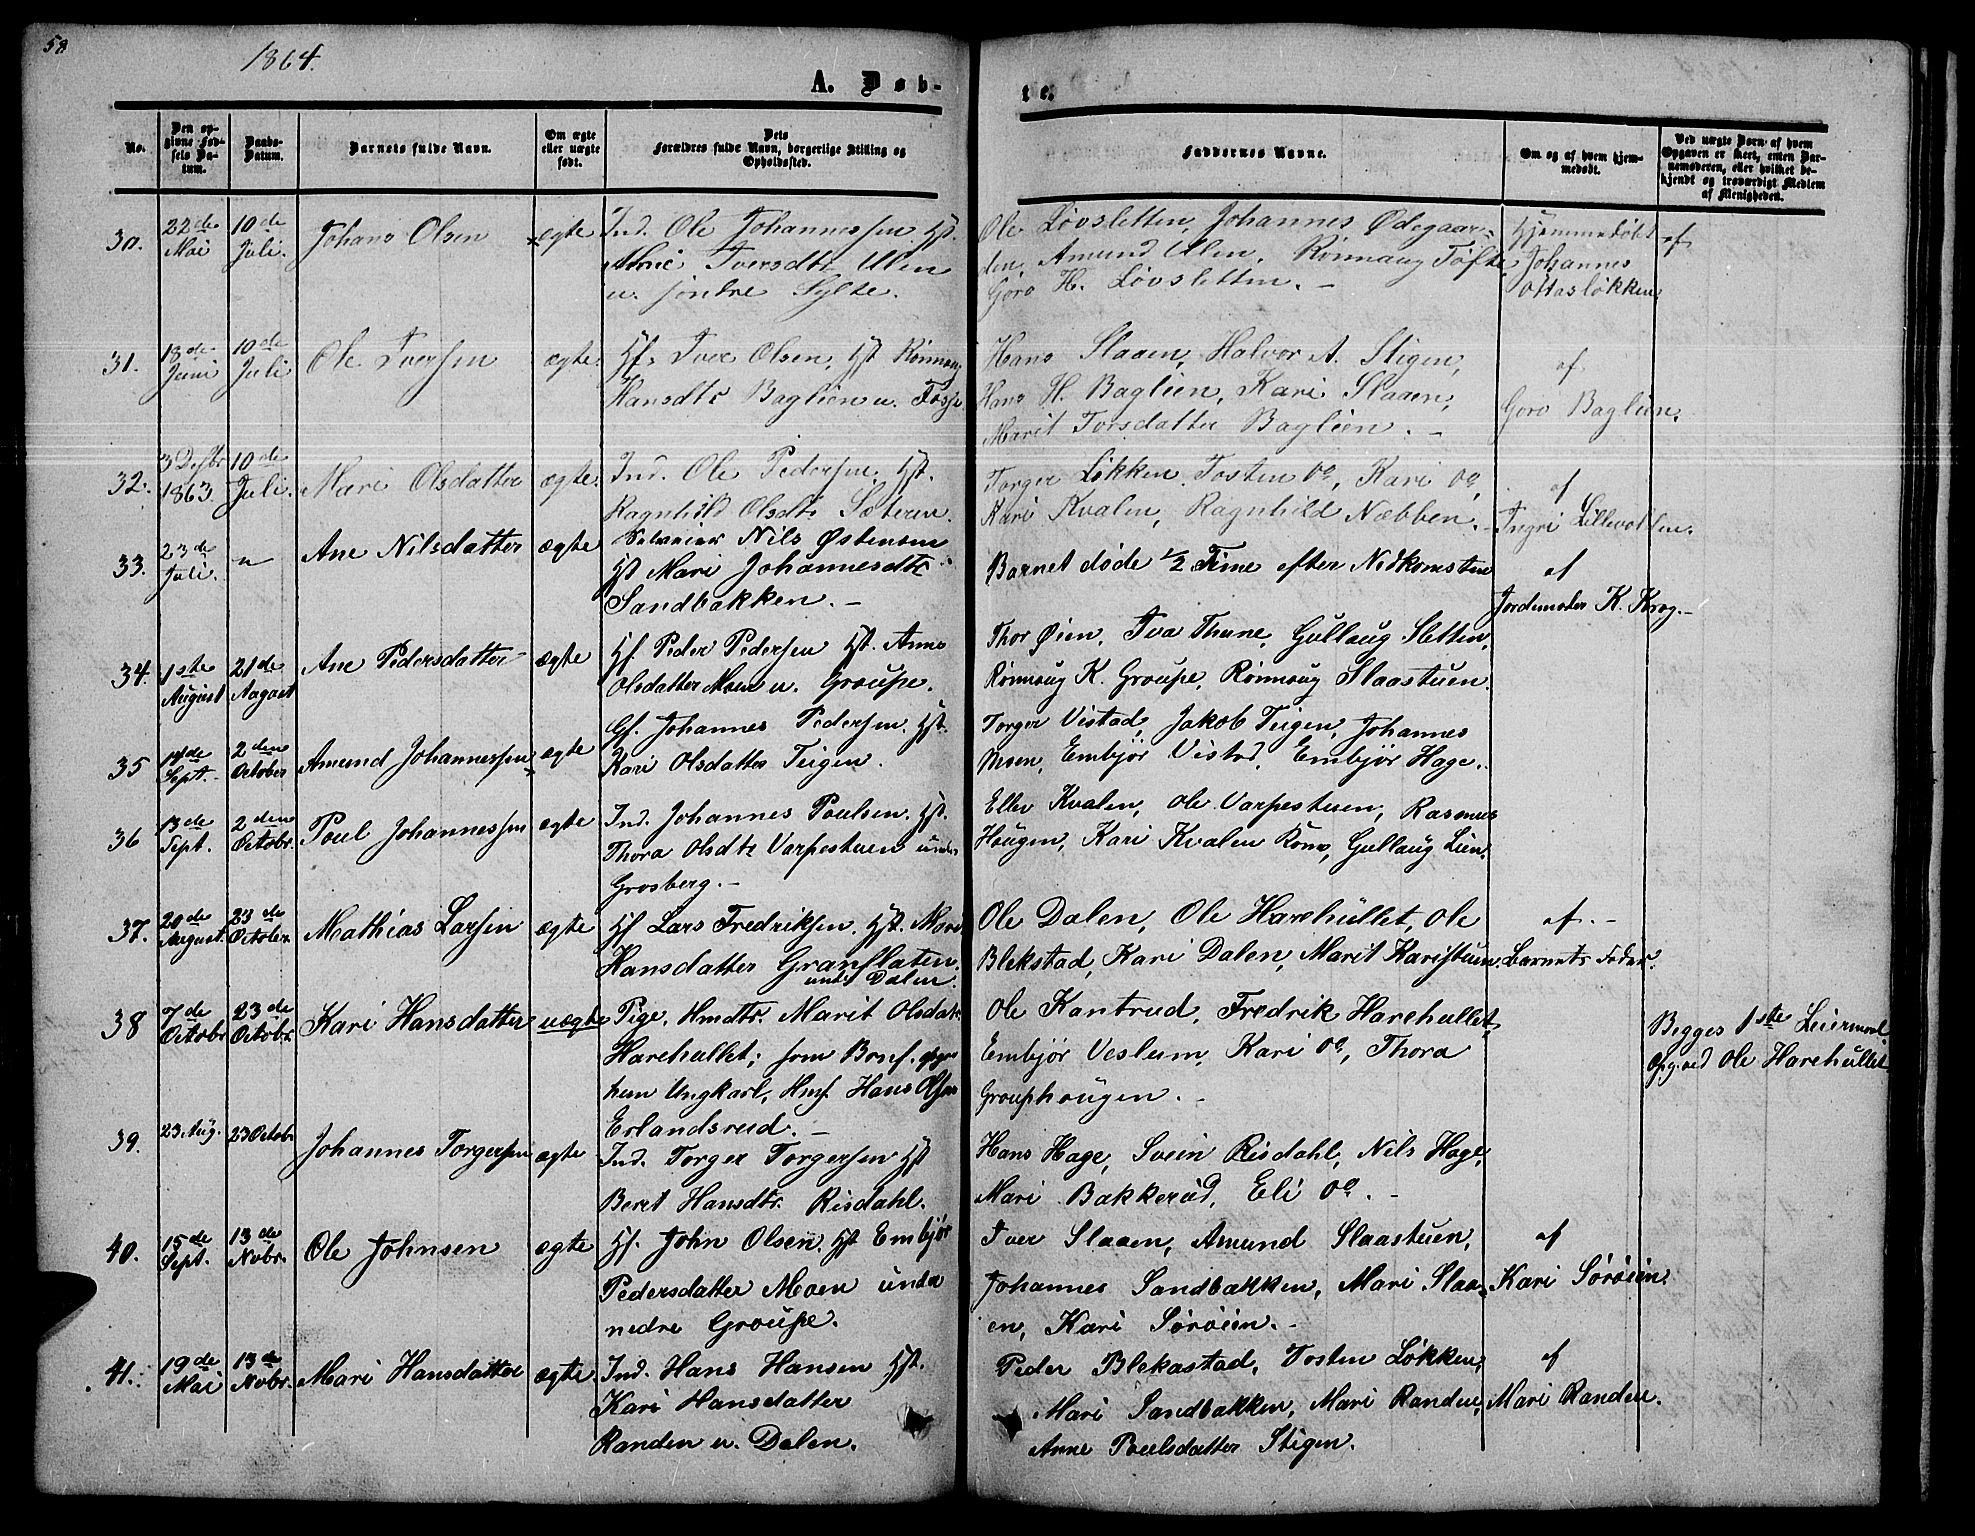 58
1864.
A. Døb-
te.
No.
Den op-
givne Fød-
sels Da-
tum.
Daabs-
Datum.
Barnets fulde Navn.
Om ægte
eller uægte
født.
Dets
Forældres fulde Navn, borgerlige Stilling og
Opholdssted.
Faddernes Navne.
Om og af hvem hjem-
medøbt.
Ved uægte Børn af hvem
Opgaven er skeet, enten Bar-
nemoderen, eller hvilket be-
kjendt og troværdigt Medlem
af Menigheden.
30. 22de Mai 10de Juli. Johans Olsen ægte Ind. Ole Johannessen Hst.
Iversdtr Ulen
u. søndre Sylte.
Ole Løvsletten, Johannes Ødegaar-
den, Amund Ulen, Rønnaug Tofte,
Goro H. Løvsletten. -
Hjemmedøbt af
Johannes
Ottasløkken.
31. 18de Juni 10de Juli Ole Iversen ægte. Hf. Iver Olsen, Hst Rønnaug
Hansdtr Baglien u. Fosse
Hans Slaaen, Halvor A. Stigen,
Hans H. Baglien, Kari Slaaen,
Marit Torsdatter Baglien. -
af
Goro Baglien.
32. 3 Desbr 1863. 10de Juli. Mari Olsdatter ægte. Ind. Ole Pedersen, Hst.
Ragnhild Olsdtr Sæteren.
Torger Løkken, Tosten Do, Kari Do,
Kari Kvalen, Ragnhild Næbben. -
af
Ingri Lillevolden.
33. 23de Juli. " Ane Nilsdatter ægte Selveier Nils Østensen
Hst Mari Johannesdtr
Sandbakken. -
Barnet døde 1/2 Time efter Nedkomsten
af
Jordemoder K. Krog. -
34. 1ste August 21de August Ane Pedersdatter ægte Hf. Peder Pedersen Hst. Anne
Olsdatter Moen u. Groupe.
Thor Øien, Iva Thune, Gullaug Sletten,
Rønnoug K. Groupe, Rønnoug Slaastuen.
35 14de Sept. 2den October Amund Johannessen ægte Gf. Johannes Pedersen. Hst.
Kari Olsdatter Teigen.
Torger Vistad, Jakob Teigen, Johannes
Moen, Embjør Vistad, Embjør Hage.
36 13de Sept. 2den Octobr. Poul Johannessen ægte Ind. Johannes Poulsen. Hst.
Thora Olsdtr Varpestuen under
Grosberg. -
Ellev Kvalen, Ole Varpestuen, Rasmus
Hougen, Kari Kvalen Kone, Gullaug Lien.
37. 20de August 23de October Mathias Larsen ægte Hf Lars Fredriksen. Hst. Mari
Hansdatter Granflaten
under Dalen.
Ole Dalen, Ole Harehullet, Ole
Blekstad, Kari Dalen, Marit Karistuen.
af. -
Barnets Fader.
38 7de Octobr 23de Octobr. Kari Hansdatter uægte Pige, Hmdtr. Marit Olsdatr
Harehullet; som Barnf. opgiver
hun Ungkarl, Hmf Hans Olsen
Erlandsrud. -
Ole Kantrud, Fredrik Harehullet,
Embjør Veslum, Kari Do, Thora
Grouphougen. -
Begges 1ste Leiermaal
Opg. ved Ole Harehullet.
39. 23 Aug. 23 Octobr Johannes Torgersen ægte Ind. Torger Torgersen Hst
Beret Hansdtr. Risdahl.
Hans Hage, Svein Risdahl, Nils Hage,
Mari Bakkerud, Eli Do. -
40. 15de Sept. 13de Novbr. Ole Johnsen ægte Hf. John Olsen. Hst Embjør
Pedersdatter Moen under
nedre Groupe.
Iver Slaaen, Amund Slaastuen,
Johannes Sandbakken, Mari Slaa-
en, Kari Sørøien. -
af
Kari Sørøien.
41. 19de Mai 13de Novbr. Mari Hansdatter ægte Ind. Hans Hansen Hst.
Kari Hansdatter
Randen u. Dalen.
Peder Blekastad, Tosten Løkken,
Mari Sandbakken, Mari Randen,
Anne Poulsdatter Stigen.
af
Mari Randen.